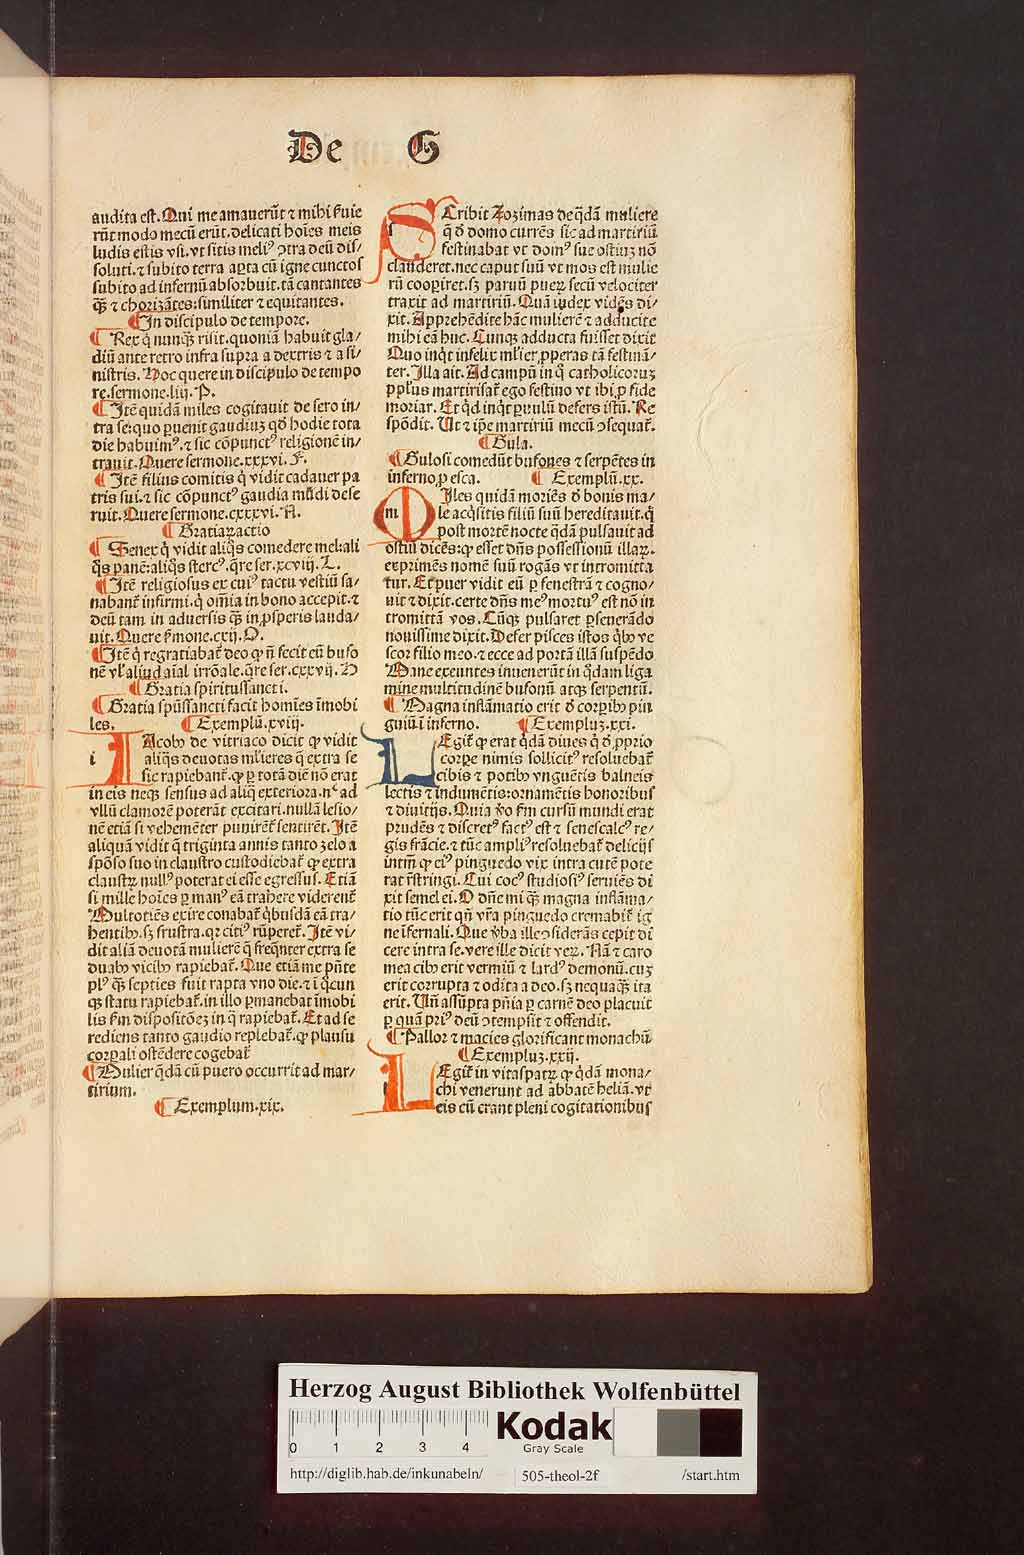 De G
audita est. Qui me amauerūt ⁊ mihi ẜuie
rūt modo mecū erūt. delicati hoīes meis
ludis estis vsi. vt sitis meliꝰ ꝯtra deū dis/
soluti. ⁊ subito terra aꝑta cū igne cunctos
subito ad infernū absorbuit. tā cantantes
qꝫ̄ ⁊ chorizātes: similiter ⁊ equitantes.
¶ In discipulo de tempore.
¶ Rex q̇ nunqꝫ̄ risit. quoniā habuit gla/
diū ante retro infra supra a dextris ⁊ a si/
nistris. Hoc quere in discipulo de tempo
re. sermone. liij. P.
¶ Itē quidā miles cogitauit de sero in/
tra se: quo ꝑuenit gaudiuꝫ qd̄ hodie tota
die habuimꝰ. ⁊ sic cōpunctꝰ religionē in/
trauit. Quere sermone. xxxvi. F.
¶ Itē filius comitis q̇ vidit cadauer pa
tris sui. ⁊ sic cōpunctꝰ gaudia mūdi dese
ruit. Quere sermone. cxxxvi. A.
¶ Gratiaꝝ actio
¶ Senex q̇ vidit aliq̇s comedere mel: ali
q̇s panē: aliq̇s stercꝰ. q̄re ser. xcviij. L.
¶ Itē religiosus ex cuiꝰ tactu vestiū sa/
nabant̄ infirmi. q̇ om̄ia in bono accepit. ⁊
deū tam in aduersis qꝫ̄ in ꝓsperis lauda/
uit. Quere ẜmone. cxij. O.
¶ Itē q̇ regratiabat̄ deo ꝙ n̄ fecit eū bufo
nē vl̓ aliud aīal irrōale. q̄re ser. cxxvij. H
¶ Gratia spiritussancti.
¶ Gratia spūssancti facit homīes īmobi
les. ¶ Exemplū. xviij.
i IAcobꝰ de vitriaco dicit ꝙ vidit
aliq̄s deuotas mlieres q̄ extra se
sic rapiebant̄. ꝙ ꝑ totā diē nō erat
in eis neqꝫ sensus ad aliq̄ exteriora. nꝰ ad
vllū clamorē poterāt excitari. nullā lesio/
nē etiā si vehemēter punirēt̄ sentirēt. Itē
aliquam vidit q̄ triginta annis tanto zelo a
spōso suo in claustro custodiebat̄ ꝙ extra
claustꝝ nullꝰ poterat ei esse egressus. Etiā
si mille hoīes ꝑ manꝰ eā trahere viderent̄
Multotiēs exire conabat̄ q̇busdā eā tra/
hentibꝰ. sꝫ frustra. qꝛ citiꝰ rūperet̄. Itē vi/
dit aliā deuotā mulierē q̄ freq̄nter extra se
duabꝰ vicibꝰ rapiebat̄. Que etiā me p̄nte
plꝰ qꝫ̄ septies fuit rapta vno die. ⁊ ī q̇cun
qꝫ statu rapiebat̄. in illo ꝑmanebat īmobi
lis ẜm dispositōeꝫ in q̄ rapiebat̄. Et ad se
rediens tanto gaudio replebat̄. ꝙ plausu
corꝑali ostēdere cogebat̄
¶ Mulier q̄dā cū puero occurrit ad mar/
tirium.
¶ Exemplum. xix.
SCribit Zozimas de q̄dā muliere
q̄ d̄ domo currēs sic ad martiriū
festinabat vt domꝰ sue ostiuꝫ nō
clauderet. nec caput suū vt mos est mulie
rū cooꝑiret. sꝫ paruū pueꝝ secū velociter
traxit ad martiriū. Quā iudex vidēs di/
xit. Apprehēdite hāc mulierē ⁊ adducite
mihi eā huc. Cunqꝫ adducta fuisset dixit
Quo inq̇t infelix ml̓ier ꝓperas tā festinā/
ter. Illa ait. Ad campū in q̇ catholicoruꝫ
ppl̓us martirisat̄ ego festino vt ibi ꝓ fide
moriar. Et q̇d inq̇t ꝑuulū defers istū. Re
spōdit. Ut ⁊ ip̄e martiriū mecū ꝯsequat̄.
¶ Gula.
¶ Gulosi comedūt bufones ⁊ serpētes in
inferno ꝓ esca. ¶ Exemplū. xx.
m MIles quidā moriēs d̄ bonis ma/
le acq̇sitis filiū suū hereditauit. q̇
post mortē nocte q̄dā pulsauit ad
ostiū dicēs: ꝙ esset dn̄s possessionū illaꝝ.
exprimēs nomē suū rogās vt intromitta
tur. Et puer vidit eū ꝑ fenestrā ⁊ cogno/
uit ⁊ dixit. certe dn̄s meꝰ mortuꝰ est nō in
tromittā vos. Cūqꝫ pulsaret ꝑseuerādo
nouissime dixit. Defer pisces istos q̇bꝰ ve
scor filio meo. ⁊ ecce ad portā illā suspēdo
Mane exeuntes inuenerūt in q̇dam liga
mine multitudinē bufonū atqꝫ serpentū.
¶ Magna inflāmatio erit d̄ corꝑibꝰ pin
guiū ī inferno. ¶ Exempluꝫ. xxi.
LEgit̄ ꝙ erat q̇dā diues q̇ d̄ ꝓprio
corꝑe nimis sollicitꝰ resoluebat̄
cibis ⁊ potibꝰ vnguētis balneis
lectis ⁊ indumētis: ornamētis honoribus
⁊ diuitijs. Quia v̓o ẜm cursū mundi erat
prudēs ⁊ discretꝰ factꝰ est ⁊ senescalcꝰ re/
gis frācie. ⁊ tūc ampliꝰ resoluebat̄ delicijs
intm̄ ꝙ eiꝰ pinguedo vix intra cutē pote
rat r̄stringi. Cui cocꝰ studiosiꝰ seruiēs di
xit semel ei. O dn̄e mi qꝫ̄ magna inflāma/
tio tūc erit qn̄ vr̄a pinguedo cremabit̄ ig
ne īfernali. Que v̓ba ille ꝯsiderās cepit di
cere intra se. vere ille dicit veꝝ. Nā ⁊ caro
mea cibꝰ erit vermiū ⁊ lardꝰ demonū. cuꝫ
erit corrupta ⁊ odita a deo. sꝫ nequaqꝫ̄ ita
erit. Un̄ assūpta pn̄ia ꝑ carnē deo placuit
ꝑ quā priꝰ deū ꝯtempsit ⁊ offendit.
¶ Pallor ⁊ macies glorificant monachū
¶ Exempluꝫ. xxij.
LEgit̄ in vitaspatꝝ ꝙ q̇dā mona/
chi venerunt ad abbatē heliā. vt
eis cū erant pleni cogitationibus
Herzog August Bibliothek Wolfenbüttel
0 1 2 3 4
Kodak
Gray Scale
http://diglib.hab.de/inkunabeln/ 505-theol-2f /start.htm